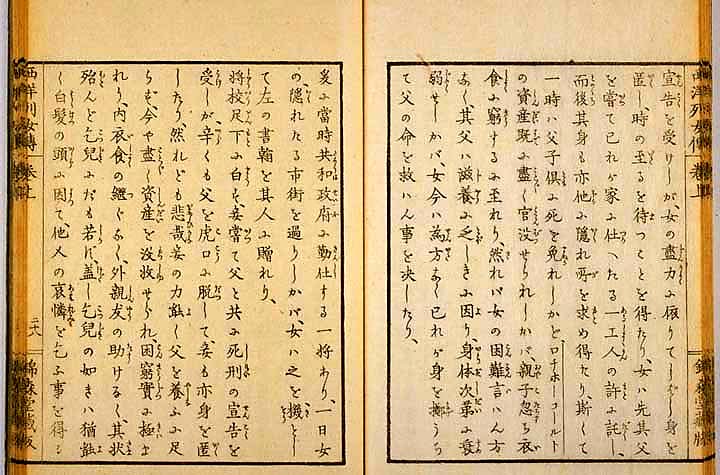 西洋列女傳 巻上 錦森堂藏版
宣告を受けしが、女の盡力に依りてしばし身を
匿し、時の至るを待つことを得たり、女ハ先其父
を嘗て己れが家に仕へたる一工人の許に託し、
而後其身も亦他に隱れ所を求め得たり、斯くて
一時ハ父子倶に死を免れしかどロナホーコールト
の資産既に盡く官没せられしかバ、親子忽ち衣
食に窮するに至れり、然れバ女の困難言ハん方
なく、其父ハ滋養に乏しきに因り、身体次第に衰
弱せしかバ、女今ハ為方なく己れが身を擲うち
て父の命を救ハん事を決したり、
爰に當時共和政府に勤仕する一将あり、一日女
の隱れたる市街を過りしかバ、女ハ之を機とし
て左の書翰を其人に贈れり、
将校足下に白す、妾嘗て父と共に死刑の宣告を
受しが辛くも父を虎口に脱して、妾も亦身を匿
したり、然れども悲哉妾の力能く父を養ふに足
らず、今や盡く資産を没收せられ、困窮實に極ま
れり、内衣食の繼ぐなく、外親友の助けなく、其状
殆んど乞兒にだも若ず、蓋し乞兒の如きハ猶能
く白髪の頭に因て他人の哀憐を乞ふ事を得る
西洋列女傳 巻上 二十八 錦森堂藏版